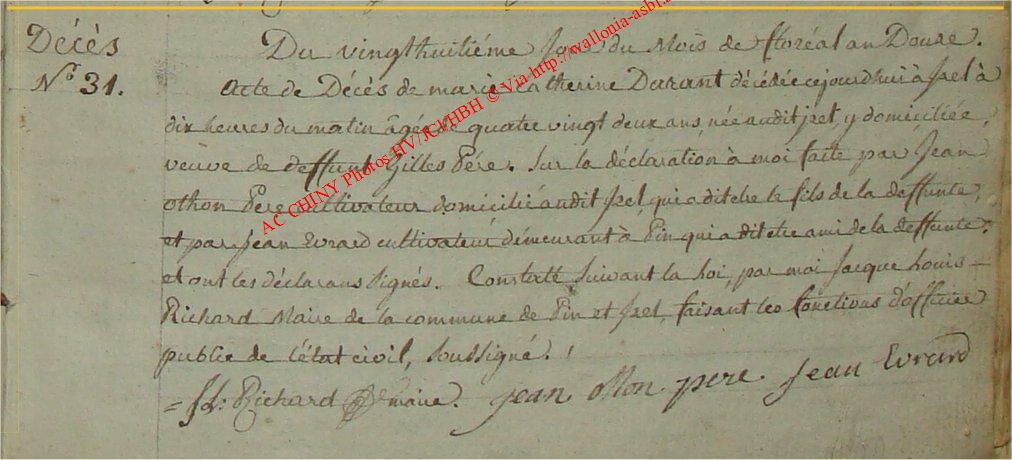 Décès
N.° 31.
Du vingthuitiéme Jour du Mois de floréal an Douze.
Acte de Décès de marie Catherine Durant décédée cejourdhui à Izel à
dix heures du matin âgée de quatre vingt deux ans, née audit jzel, y domiciliée,
veuve de deffunt Gilles Pére. Sur la déclaration à moi faite par Jean
othon Pere cultivateur domicilié audit Izel, qui a dit etre le fils de la deffunte,
et par Jean Evrard cultivateur démeurant à Pin qui a dit etre ami de la deffunte.
et ont les déclarans signés. Constaté suivant la Loi, par moi Jacque Louis
Richard Maire de la commune de Pin et Izel, faisant les fonctions d'officier
public de l'état civil, soussigné.
= JL: Richard maire. jean otton pere jean Evrard
AC CHINY Photos HV/JCl/HBH © Via http://wallonia-asbl.